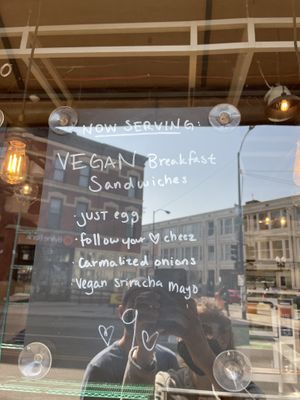 NOW SERVING:
VEGAN Breakfast
Sandwiches
· JUST egg
· follow your ♡ cheez
· Carmalized onions
· Vegan Sriracha Mayo